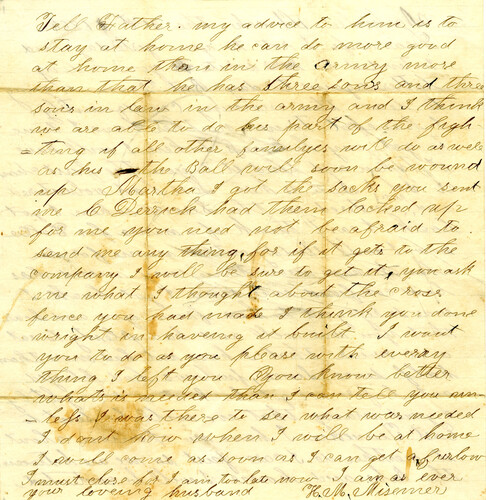 Tell Father. my advice to him is to
stay at home he can do more good
at home than in the army more
than that he has three sons and three
sons in law in the army and I think
we are able to do his part of the figh
=ting if all other familyes will do as well
as his the Ball will soon be wound
up Martha I got the sacks you sent
me C Derrick had them locked up
for me you need not be afraid to
send me any thing for if it gets to the
company I will be sure to get it, you ask
me what I thought about the cross
fence you had made I think you done
wright in haveing it built. I want
you to do as you please with everay
thing I left you You know better
whats is needed than I can tell you un
-less I was there to see what was needed
I dont how when I will be at home
I will come as soon as I can get a furlow
I must close as I am too late now I am as ever
your loveing husband